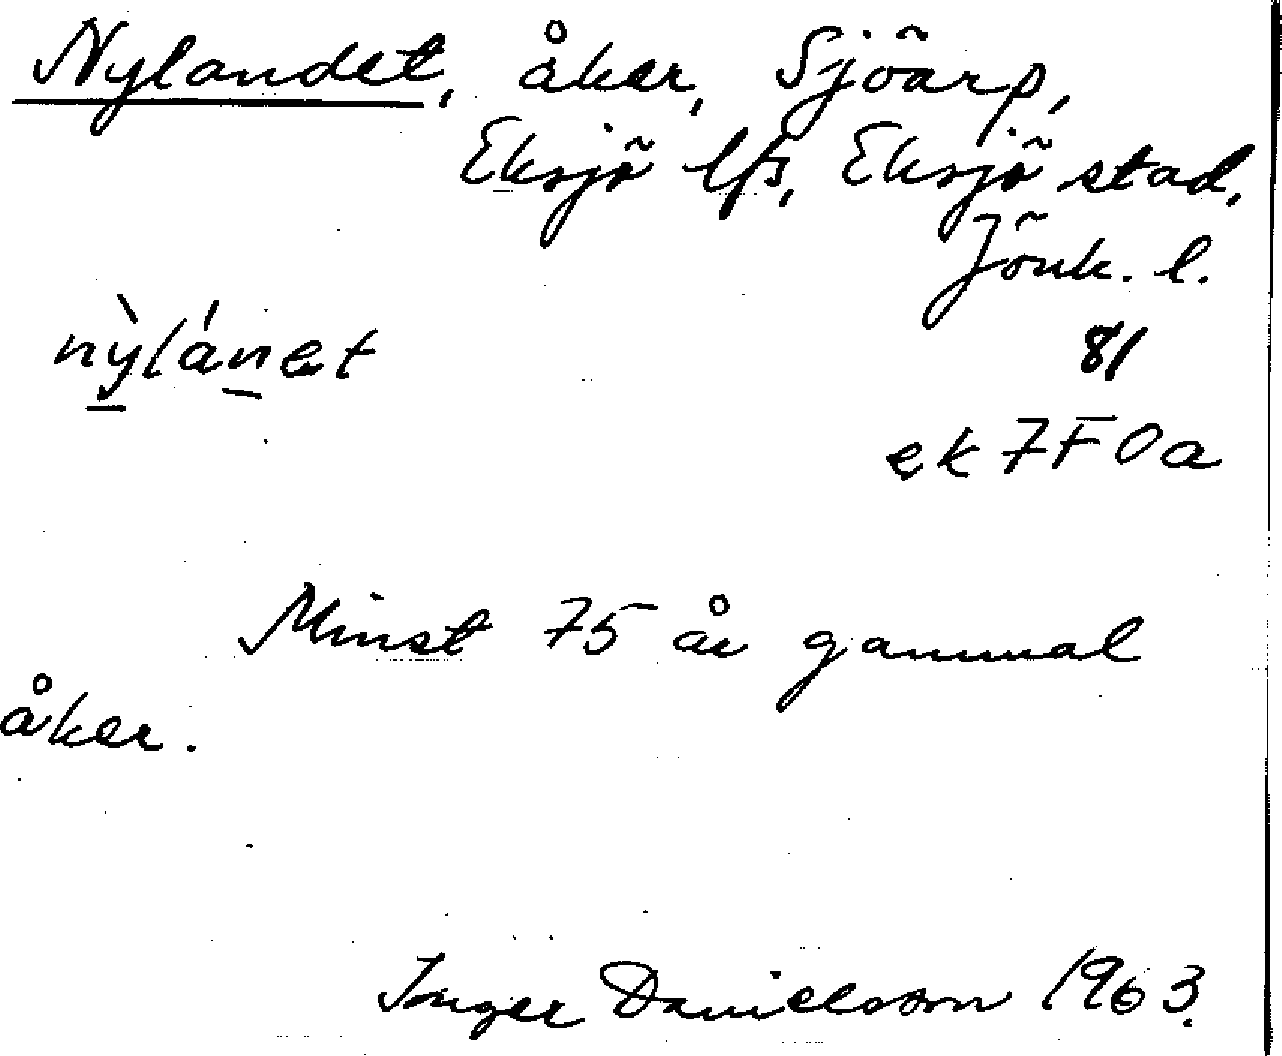 Nylandet, åker, Sjöarp,
Eksjö lfs, Eksjö stad,
Jönk. l.
nỳlánet
81
ek 7F0a
Minst 75 år gammal
åker.
Inger Danielsson 1963.